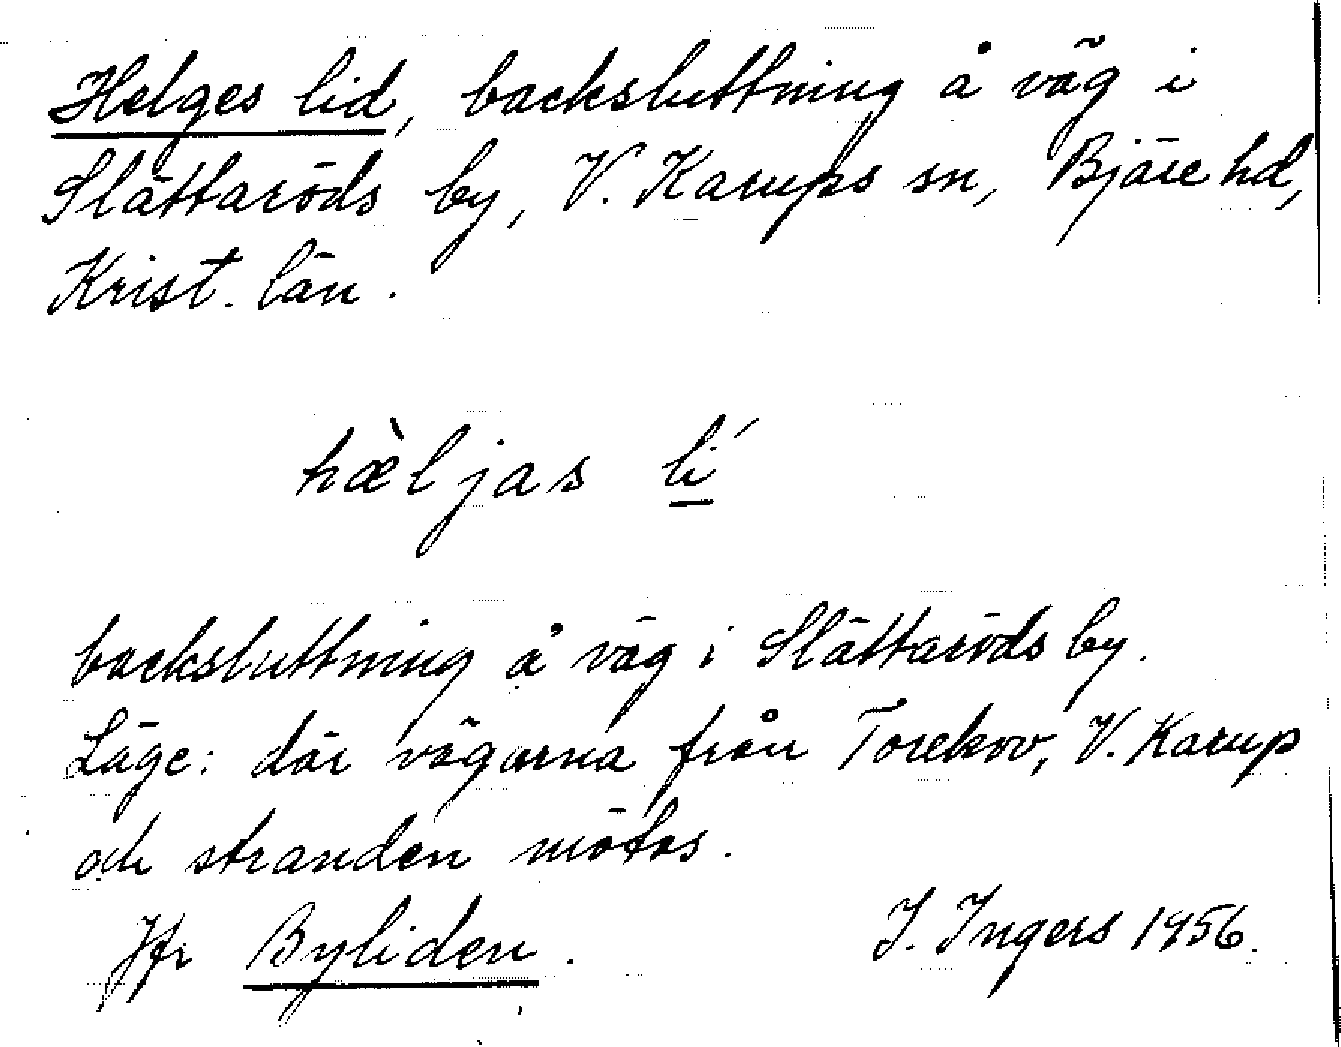 Helges lid, backsluttning å väg i
Slättaröds by, V. Karups sn, Bjäre hd,
Krist. län.
hæ̀ljas lí
backsluttning å väg i Slättaröds by.
Läge: där vägarna från Torekov, V. Karup
och stranden mötas.
Jfr Byliden.
I. Ingers 1956.